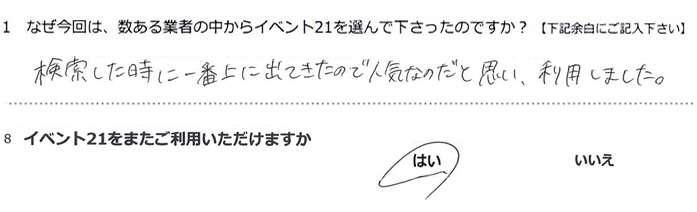 1 なぜ今回は、数ある業者の中からイベント21を選んで下さったのですか？【下記余白にご記入下さい】
検索した時に一番上に出てきたので人気なのだと思い、利用しました。
8 イベント21をまたご利用いただけますか
はい いいえ